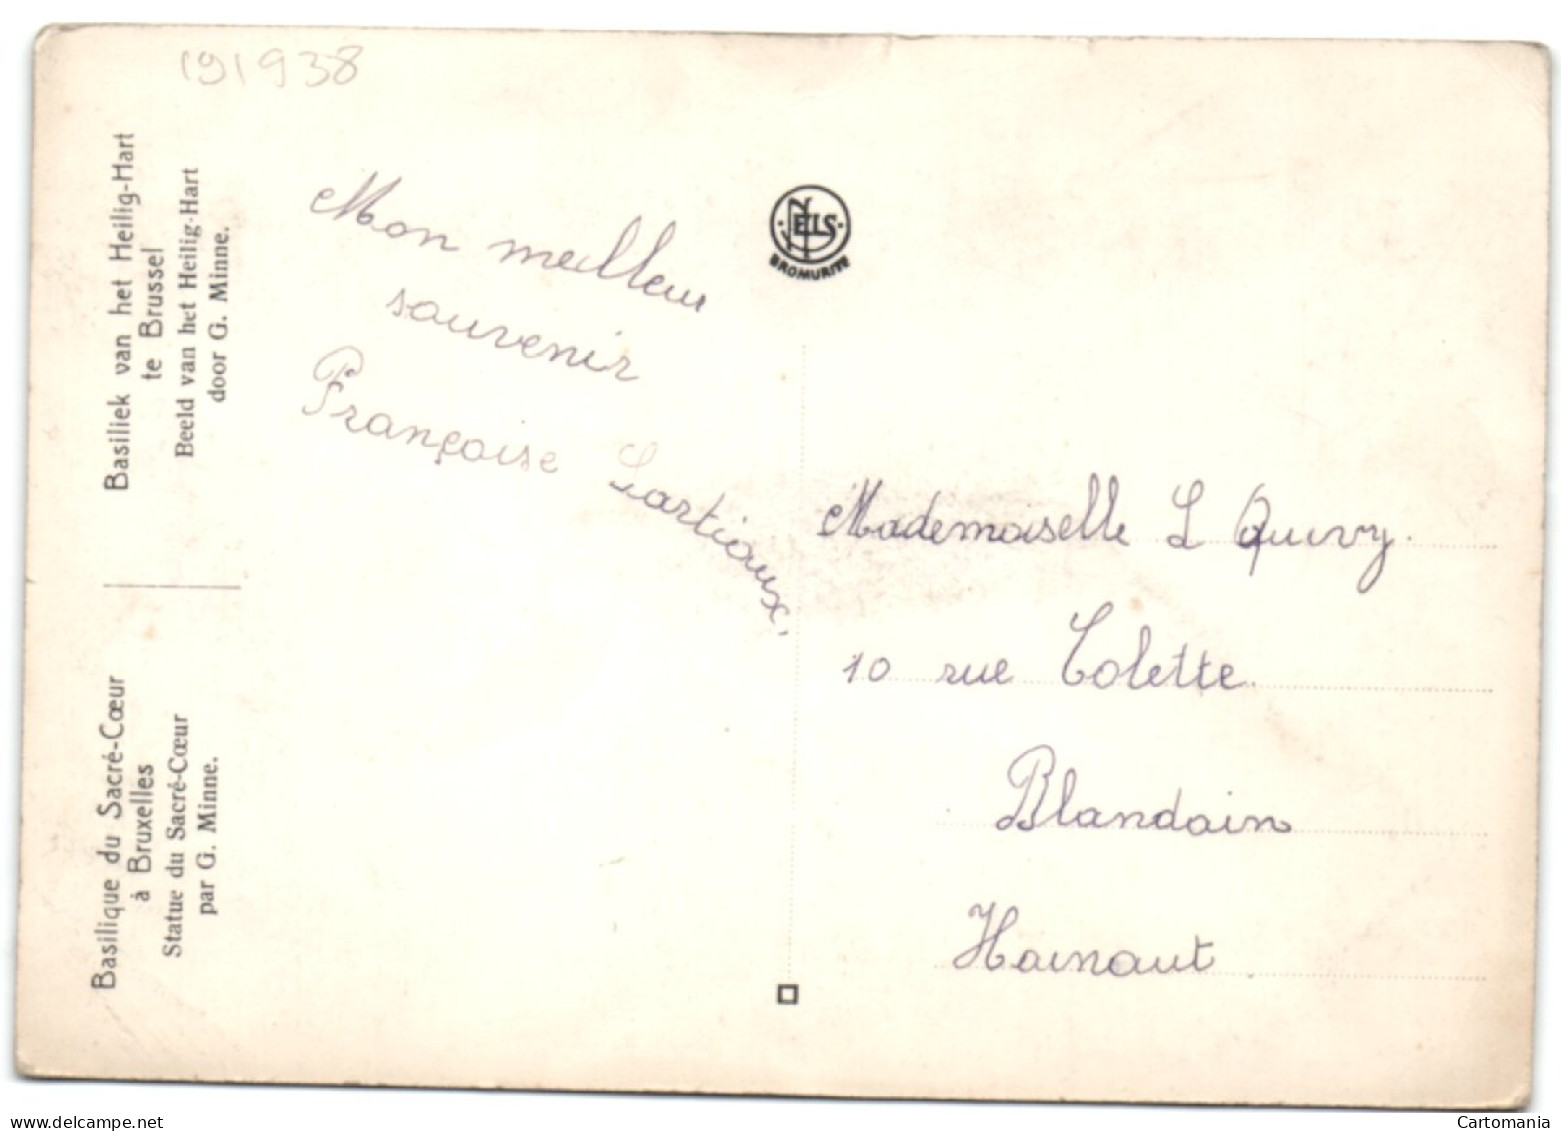 191938
Basiliek van het Heilig-Hart
te Brussel
Beeld van het Heilig-Hart
door G. Minne.
Basilique du Sacré-Cœur
à Bruxelles
Statue du Sacré-Cœur
par G. Minne.
Mon meilleur
souvenir
Françoise Lartiaux.
NELS
BROMURITE
Mademoiselle L Quivy.
10 rue Colette
Blandain
Hainaut
www.delcampe.net
Cartomania